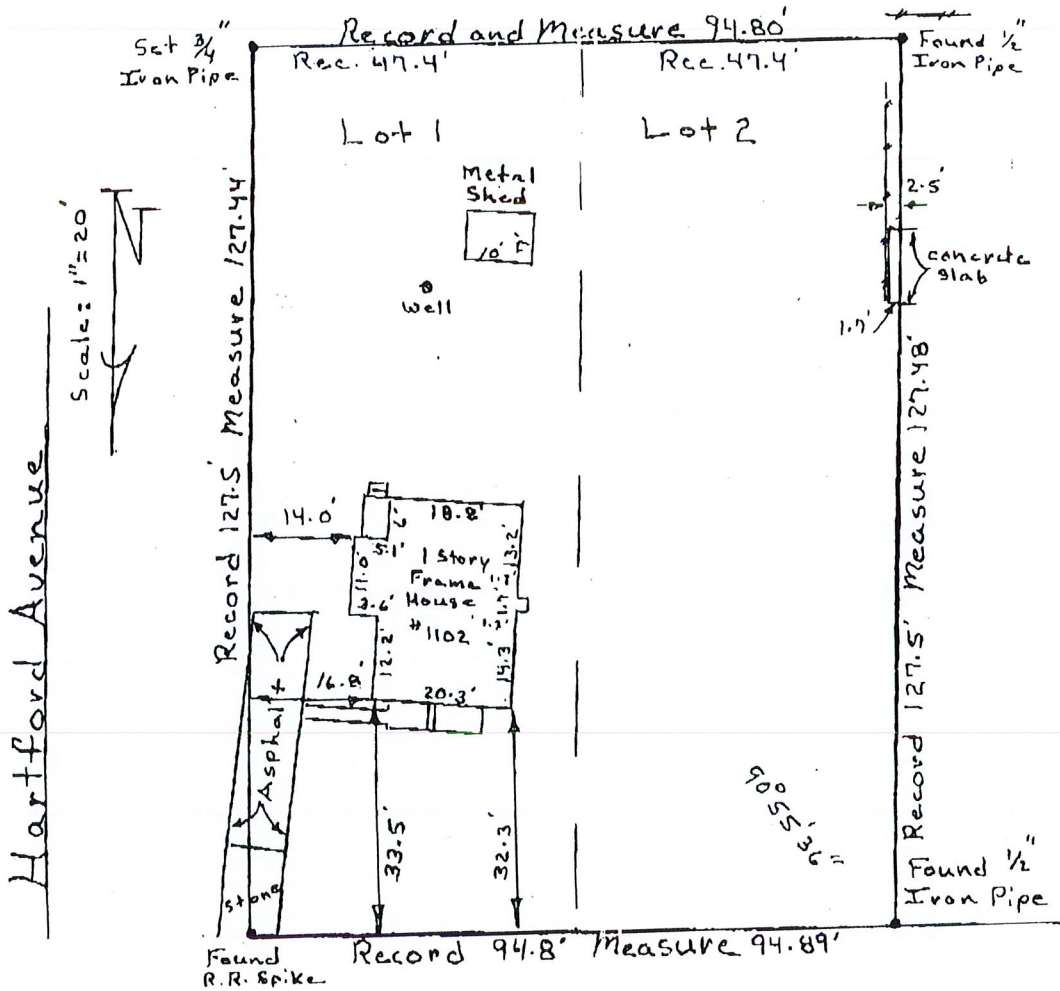 Record and Measure 94.80'
Set 3/4"
Iron Pipe
Found 1/2"
Iron Pipe
Rec. 47.4'
Rec. 47.4'
Lot 1
Lot 2
Metal
Shed
10'
7'
2.5'
concrete
slab
1.7'
well
Scale = 1" = 20'
N
Hartford Avenue
Record 127.5' Measure 127.44'
Record 127.5' Measure 127.48'
14.0'
18.2'
6'
5.1'
11.0'
3.6'
12.2'
13.2'
14.3'
1 Story
Frame
House
#1102
16.8'
20.3'
Asphalt
stone
33.5'
32.3'
90° 55' 36"
Found 1/2"
Iron Pipe
Found
R.R. Spike
Record 94.8' Measure 94.89'